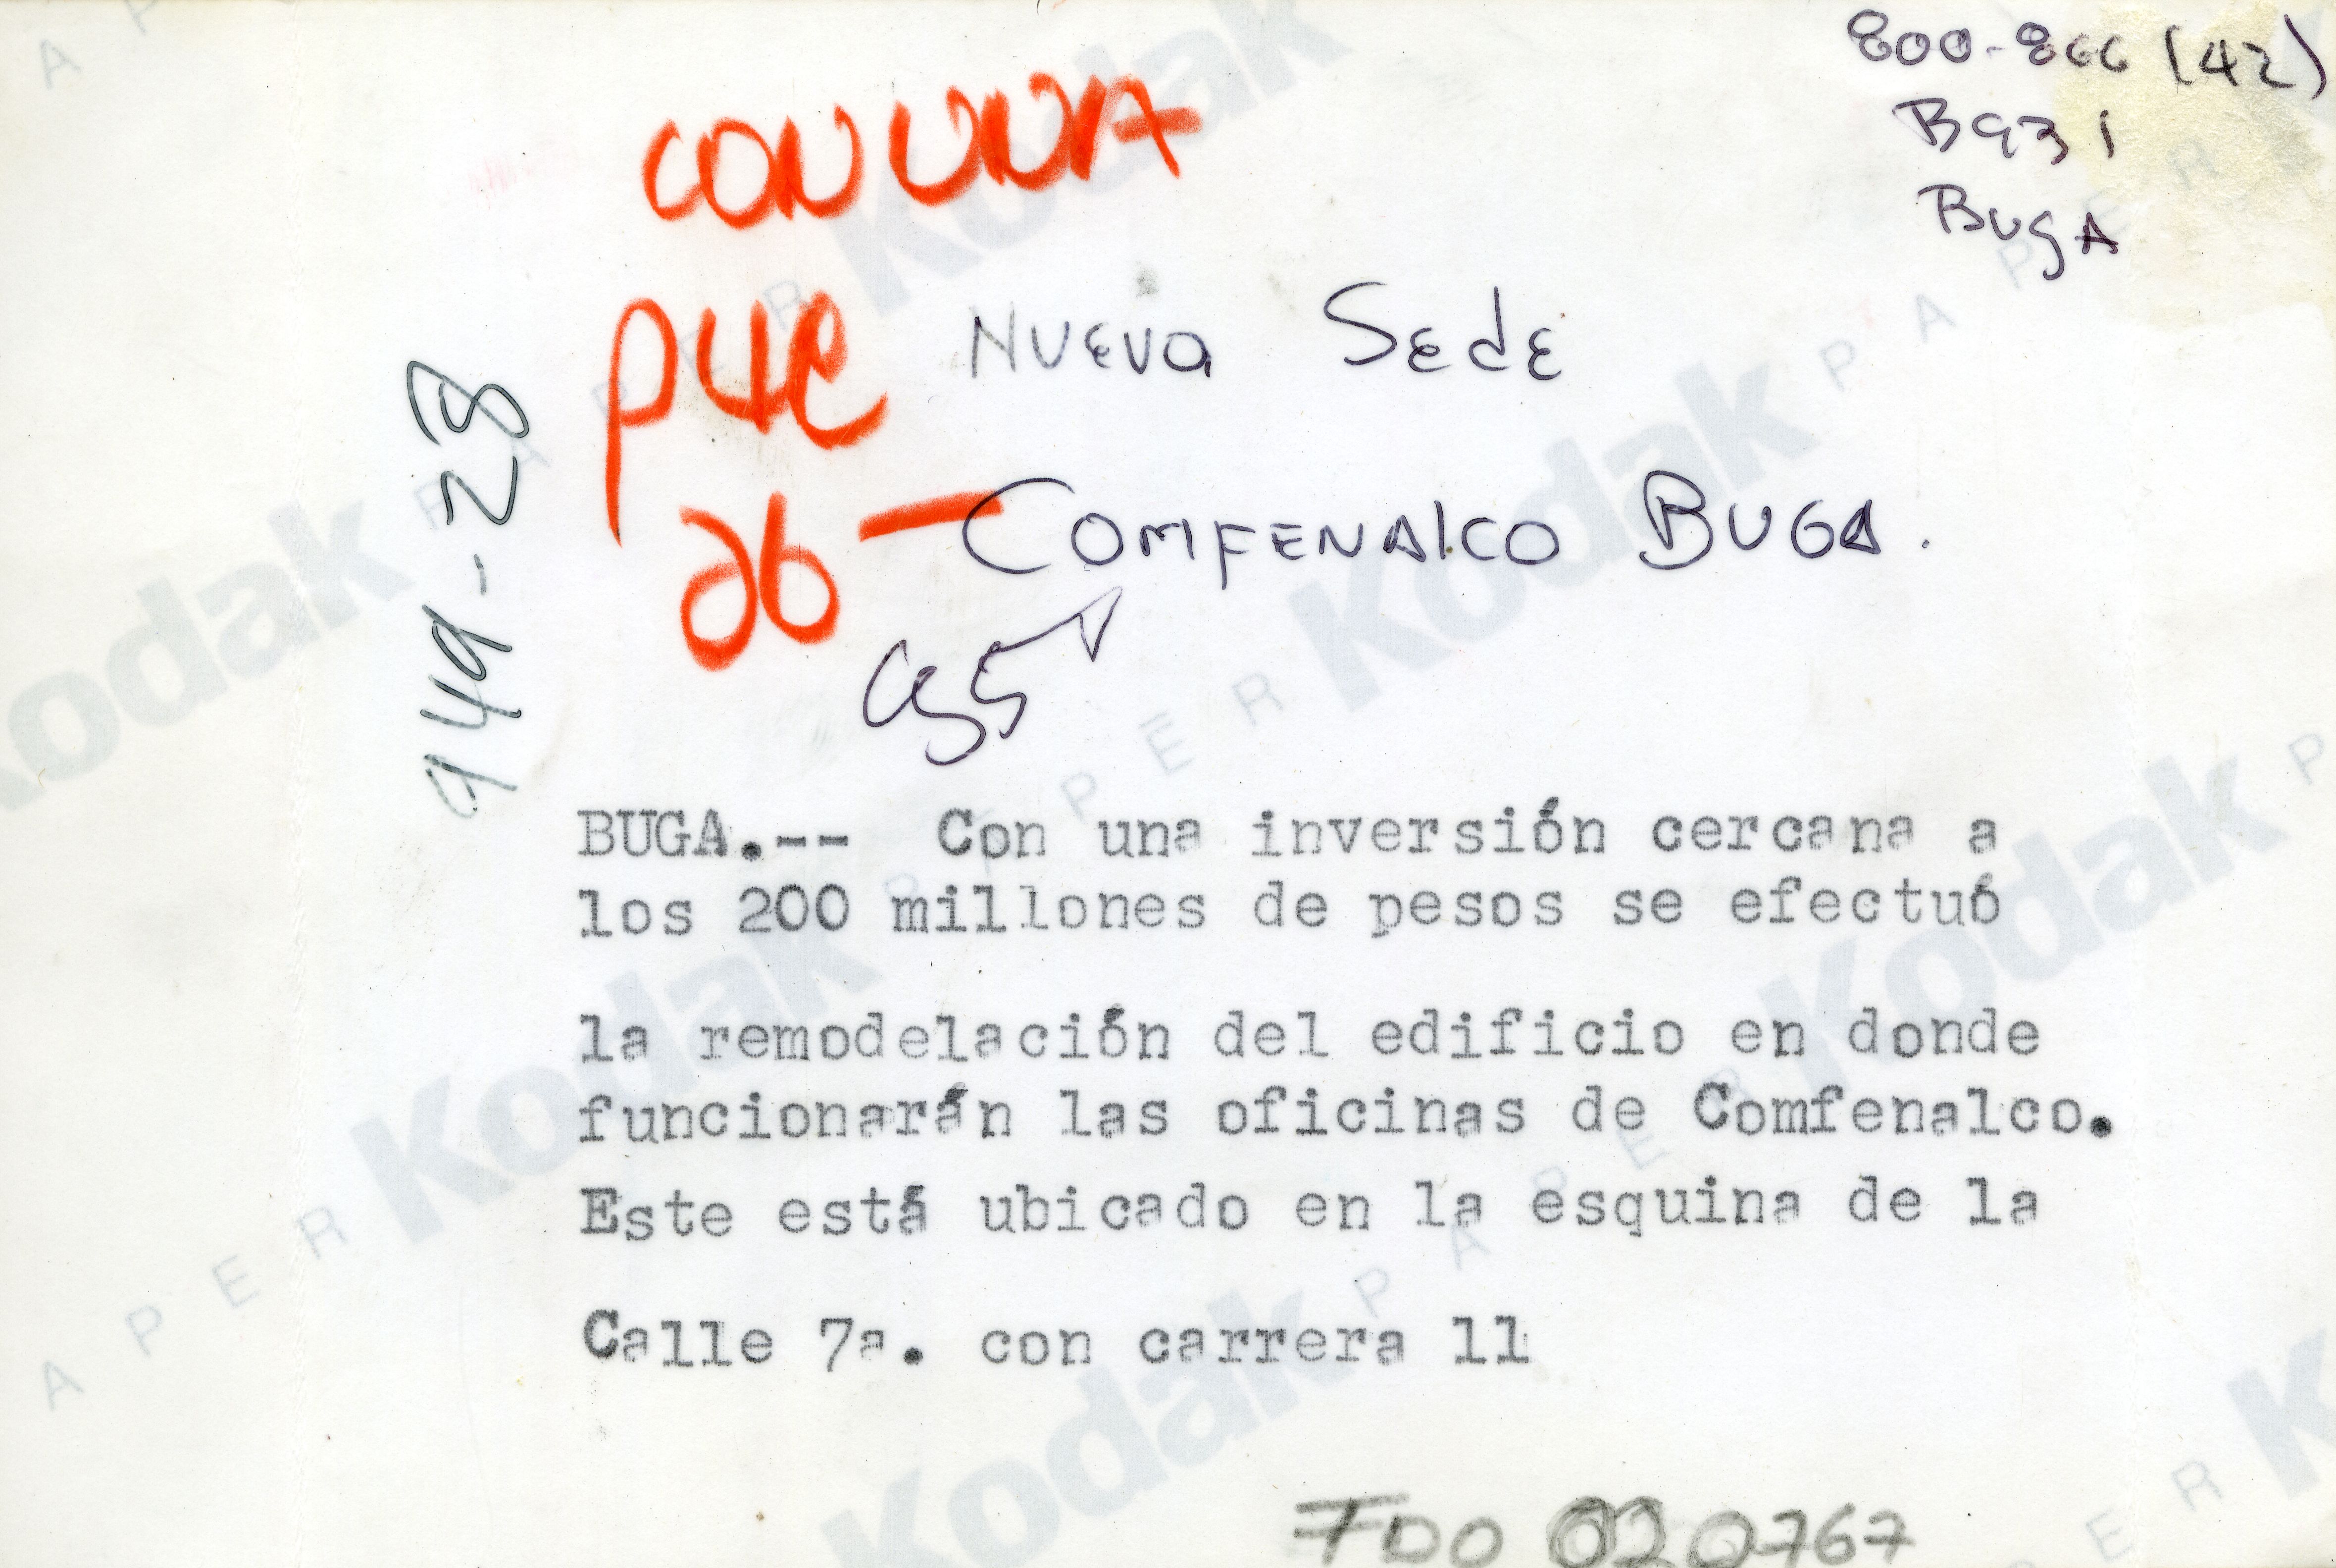 800-866 (42)
B931
BUGA
CON UNA
PUE
Nueva Sede
26 — COMFENALCO BUGA.
BUGA.-- Con una inversión cercana a
los 200 millones de pesos se efectuó
la remodelación del edificio en donde
funcionarán las oficinas de Comfenalco.
Este está ubicado en la esquina de la
Calle 7a. con carrera 11
FDO 020767
Kodak
PAPER